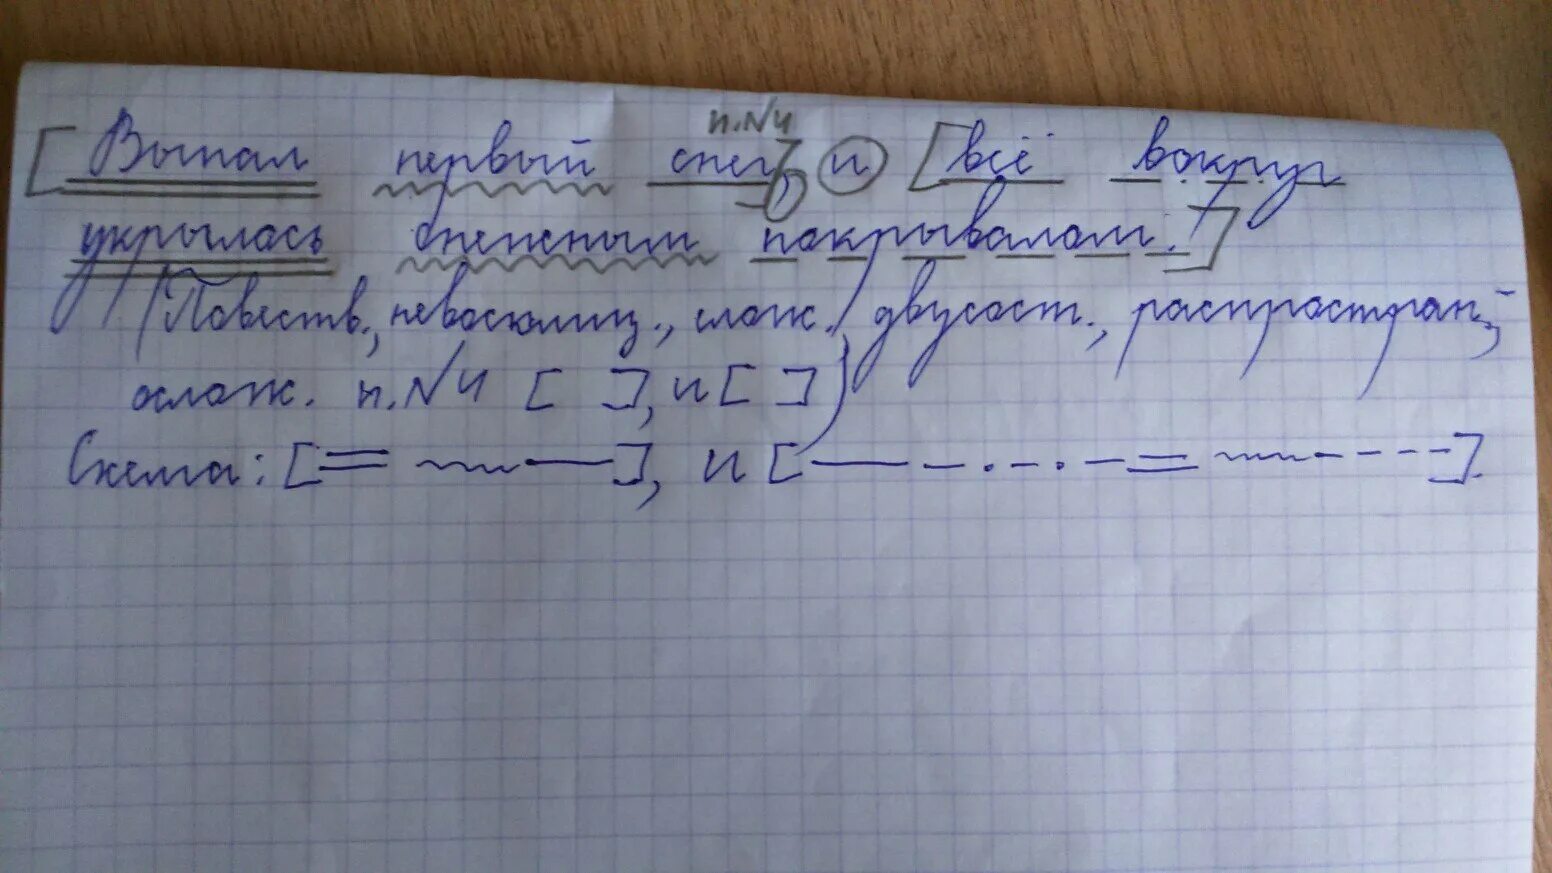 п.№4
[Выпал первый снег], и [всё вокруг
укрылась снежным покрывалом.]
(Повеств., невосклиц., слож., двусост., распростран.,
ослож. п.№4 [ ], и [ ])
Схема: [ ], и [ ].